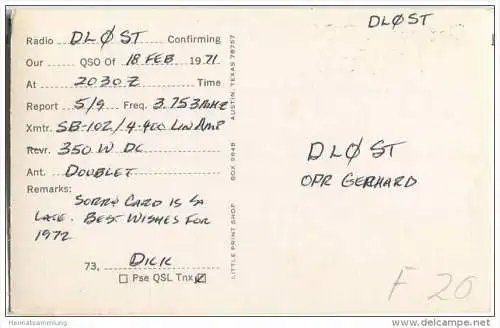 Radio DLØST Confirming
Our QSO Of 18 FEB 1971
At 2030 Z Time
Report 5/9 Freq. 3.753 MHZ
Xmtr. SB-102/4-400 LIN AMP
Rcvr. 350 W DC
Ant. DOUBLET
Remarks:
SORRY CARD IS SO
LATE. BEST WISHES FOR
1972
73, DICK
Pse QSL Tnx
LITTLE PRINT SHOP BOX 9848 AUSTIN, TEXAS 78757
DLØST
DLØST
OPR GERHARD
F 20
Heimatsammlung